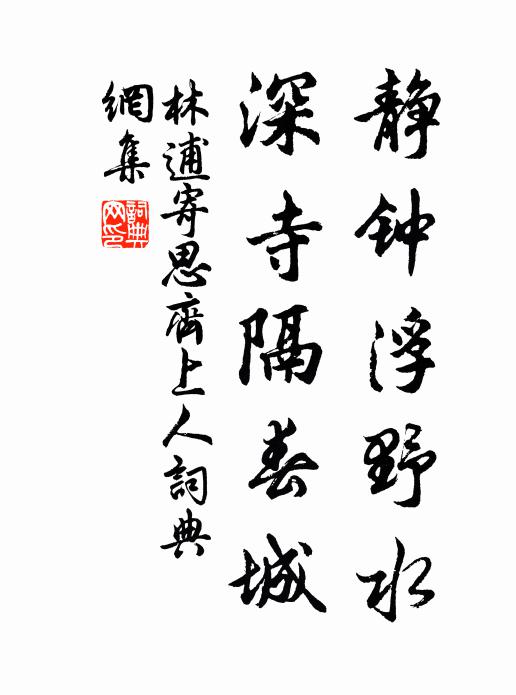 静钟浮野水
深寺隔春城
林逋寄思齊上人詞典
網集
詞典網印